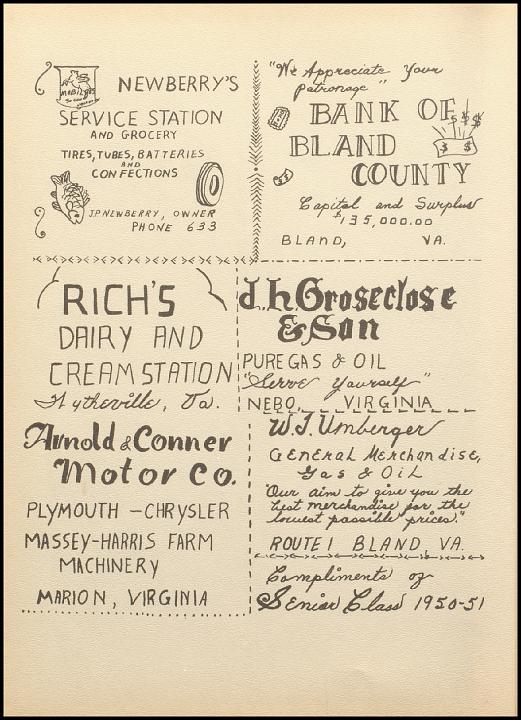 MOBILGAS
NEWBERRY'S
SERVICE STATION
AND GROCERY
TIRES, TUBES, BATTERIES
AND
CONFECTIONS
J.P. NEWBERRY, OWNER
PHONE 633
"We Appreciate Your
Patronage"
BANK OF
BLAND
COUNTY
$ $ $
$ $
Capital and Surplus
$135,000.00
BLAND, VA.
RICH'S
DAIRY AND
CREAM STATION
Wytheville, Va.
J.h. Groseclose
& Son
PURE GAS & OIL
"Serve Yourself"
NEBO, VIRGINIA
Arnold & Conner
Motor Co.
PLYMOUTH - CHRYSLER
MASSEY-HARRIS FARM
MACHINERY
MARION, VIRGINIA
W.J. Umberger
GENERAL Merchandise,
Gas & Oil
"Our aim to give you the
best merchandise for the
lowest possible prices."
ROUTE 1 BLAND, VA.
Compliments of
Senior Class 1950-51